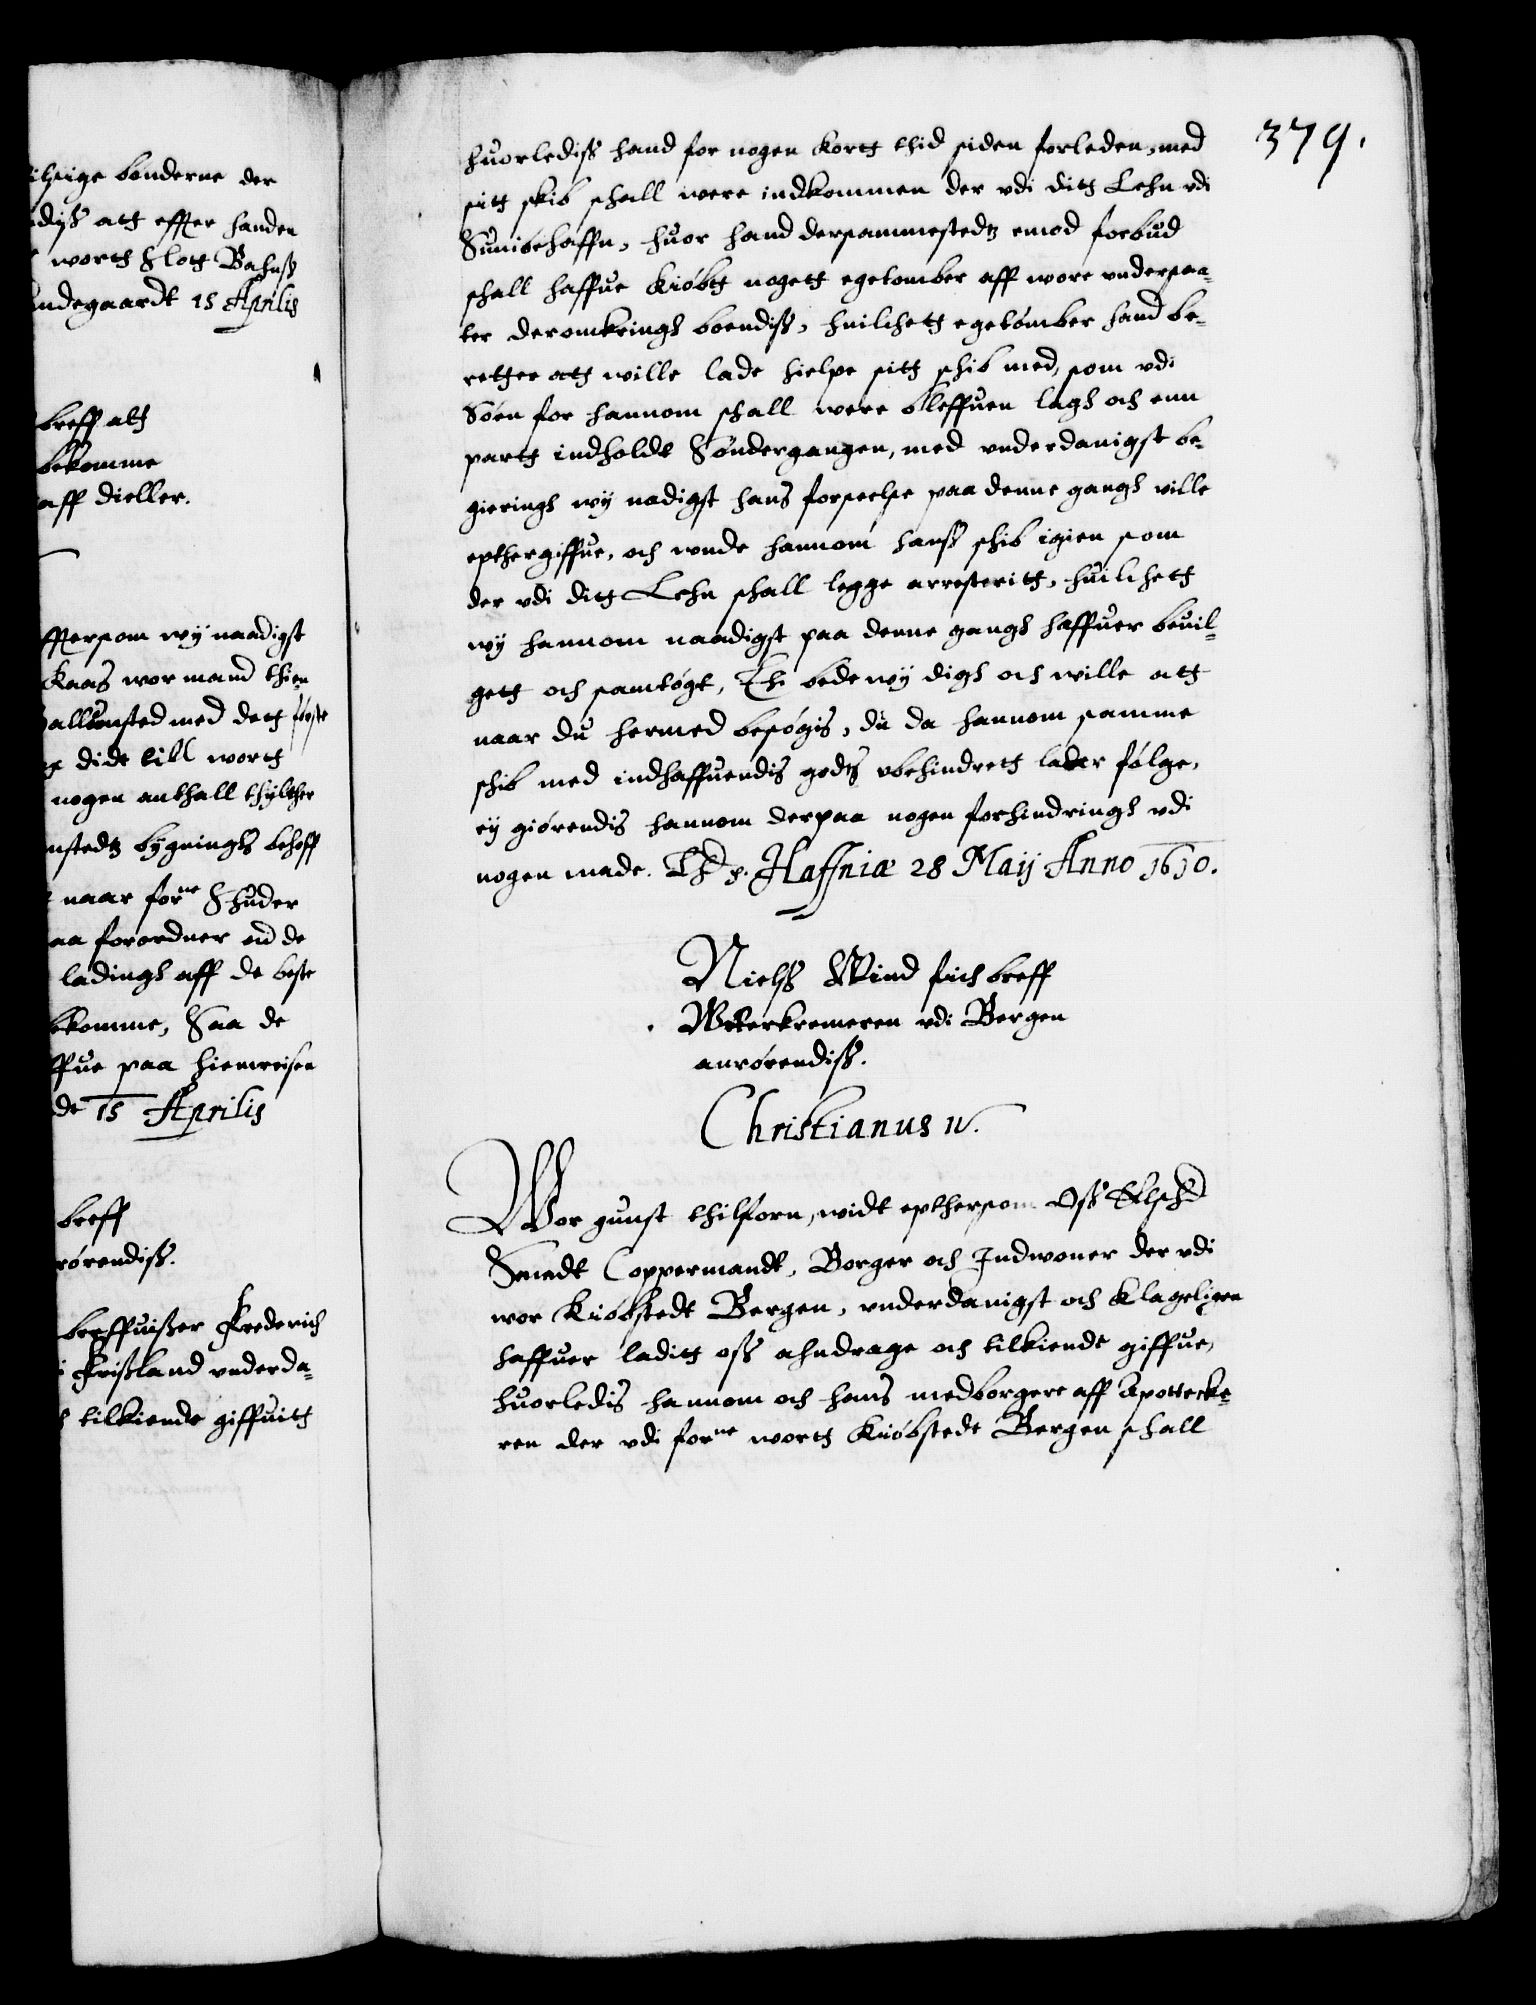 ilsige bønderne der
diß att effter handen
worth Slott Bahuß
ndegaardt 15 Aprilis
breff att
bekomme
aff dieller.
fftersom wij naadigst
Kaas wor mand thien
med dett første
didt till wortt
nogen anthall thylther
nstedtz bygningß behoff
naar forne Skuder
aa forordner och de
ladingh aff de beste
bekomme, Saa de
ffue paa hiemreisen
de 15 Aprilis
breff
rørendiß.
breffuißer Frederich
i Frißland underda-
tilkiende giffuitt
379.
huorlediß hand for nogen kortt thid siden forleden, med
sitt skib schall were indkommen der udi ditt Lehn udi
huor hand dersammestedtz emod forbud
schall haffue kiøbtt nogett egetømber aff wore undersaa-
ter deromkringh boendiß, huilchett egetømber hand be-
retter att wille lade hielpe sitt schib med, som udi
Søen for hannom schall were bleffuen lagh och enn
partt indholdt Søndergangen, med underdanigst be-
gieringh wij nadigst hans forseelse paa denne gangh wille
epthergiffue, och unde hannom hanß schib igien som
der udi ditt Lehn schall legge arresteritt, huilchett
wij hannom naadigst paa denne gangh haffuer beuil-
gett och samtøgt, Thi bede wij digh och wille att
naar du hermed besøgis, du da hannom samme
schib med indhaffuendis godtz ubehindrett lader følge,
eij giørendis hannom derpaa nogen forhindringh udi
nogen made. Haffniæ 28 Maij Anno 1610.
Nielß Wind fich breff
Wrterkremeren udi Bergen
anrørendiß.
Christianus IV.
Wor gunst thilforn, widt epthersom Oß
Smedt Coppermandt, Borger och Indwoner der udi
wor Kiøbstedt Bergen, underdanigst och klageligen
haffuer laditt oß ahndrage och tilkiende giffue,
huorledis hannom och hans medborgere aff Apottecke-
ren der udi forne wortt Kiøbstedt Bergen schall